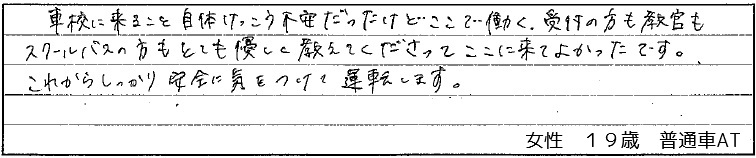 車校に来ること自体けっこう不安だったけどここで働く、受付の方も教官も
スクールバスの方もとても優しく教えてくださってここに来てよかったです。
これからしっかり安全に気をつけて運転します。
女性　１９歳　普通車AT